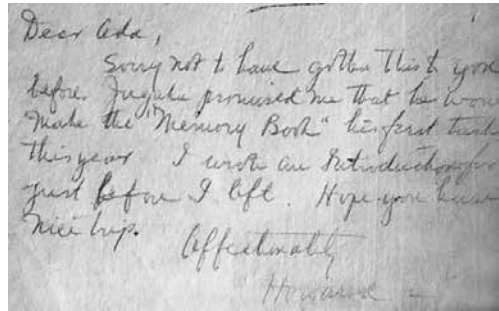 Dear Ada,
Sorry not to have gotten this to you
before. promised me that he wou
make the "Memory Book" his first task
this year I wrote an Introduction for
just before I left. Hope you have
nice trip.
Affectionately
Howard